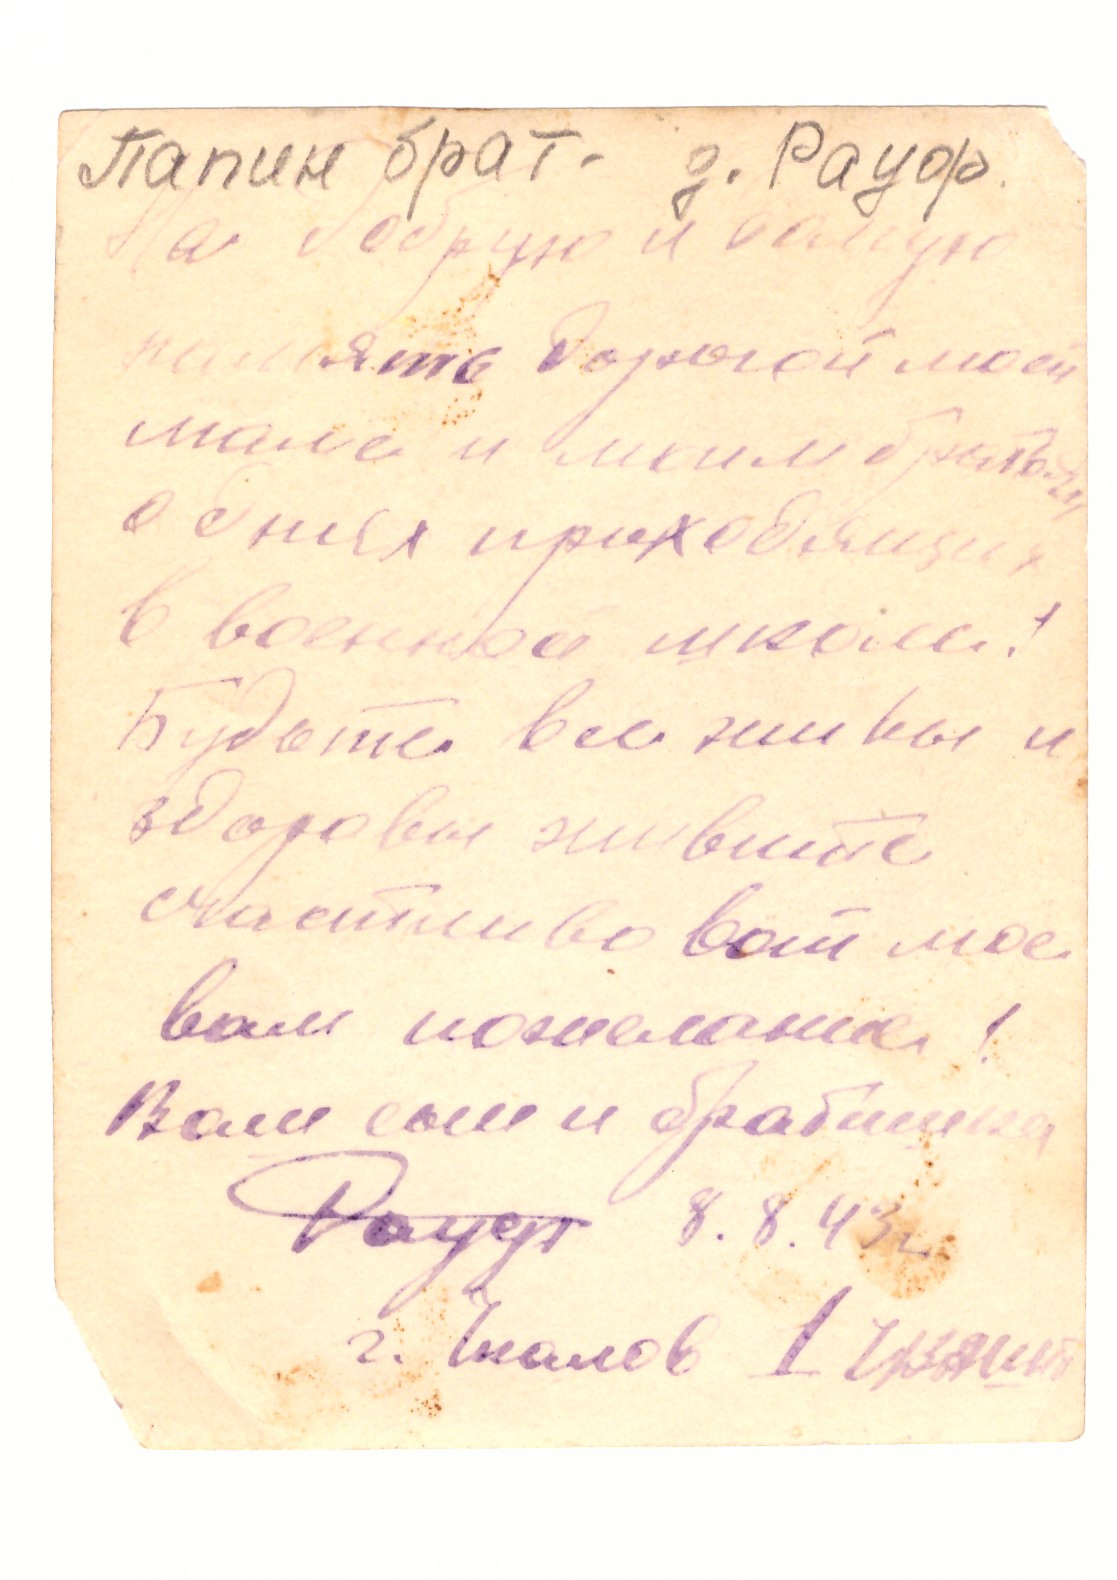 Папин брат. д. Рауф.
На добрую и долгую
память дорогой моей
маме и моим братьям
о днях приходящих
в военной школе!
Будьте все живы и
здоровы живите
счастливо вот мое
вам пожелание!
Вам сын и братишка
Рауф 8.8.43г
г. Чкалов 1